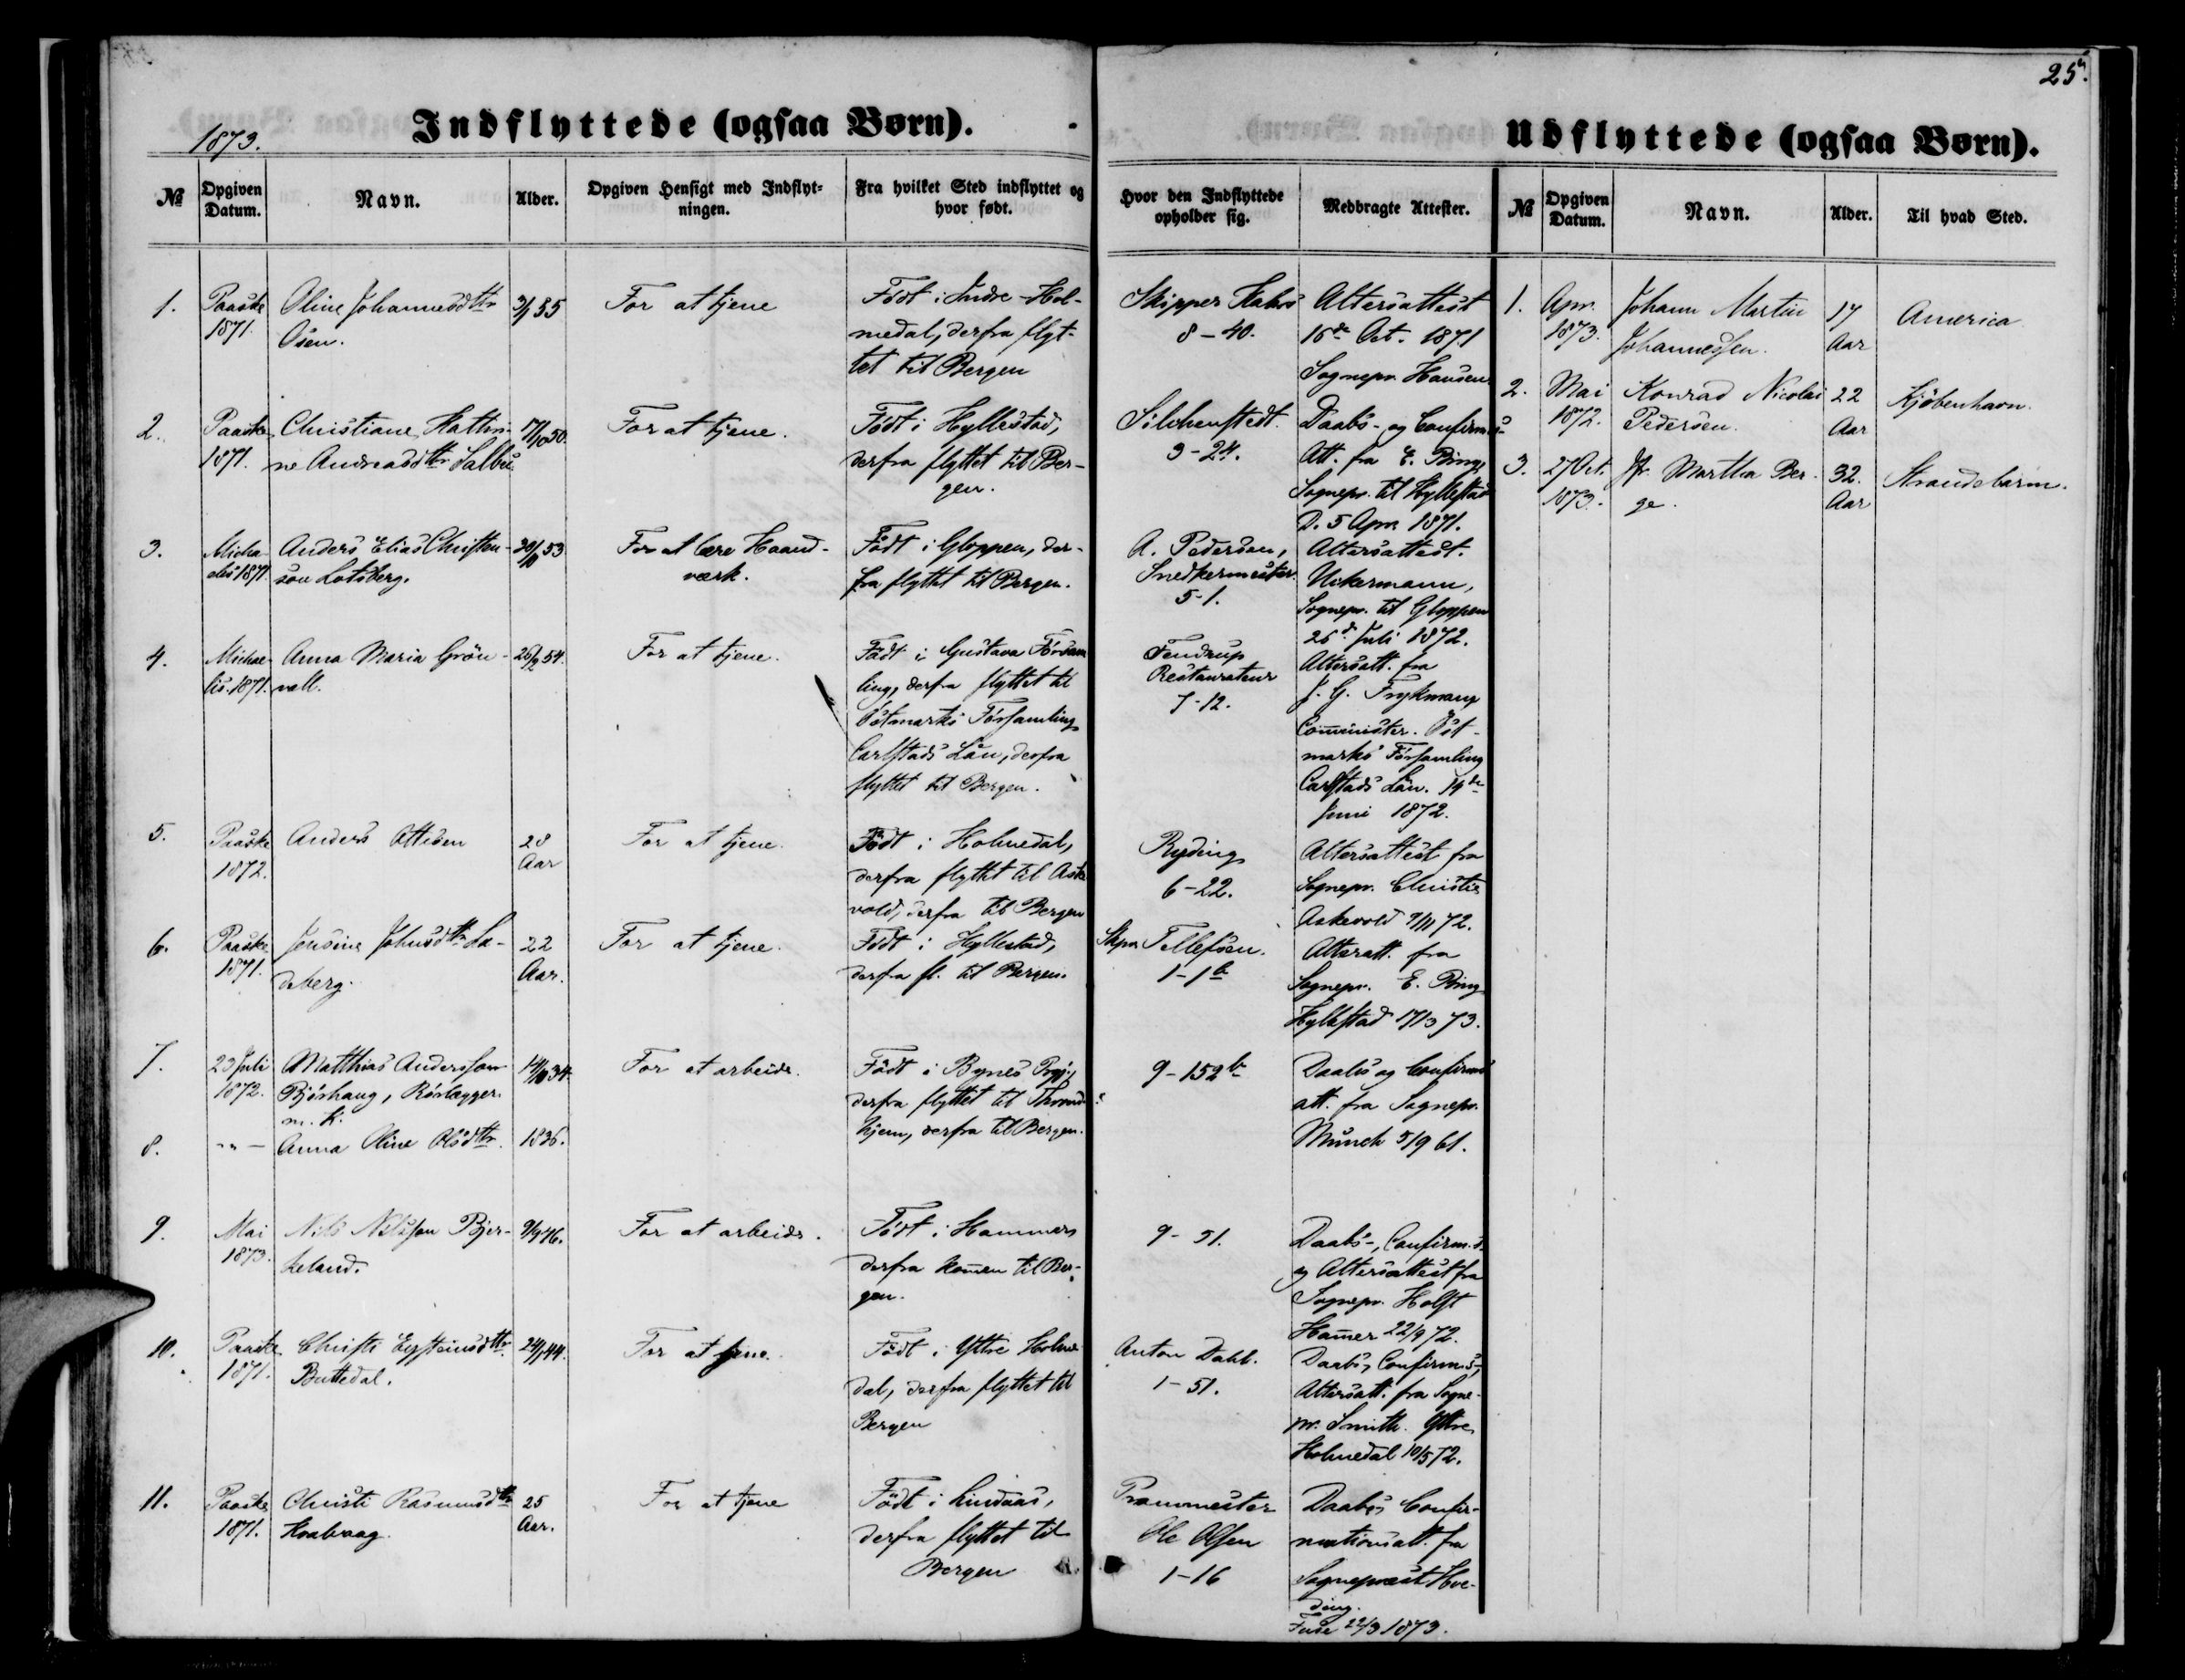 25.
1873.
Indflyttede (ogsaa Børn).
Udflyttede (ogsaa Børn).
№
Opgiven Datum.
Navn.
Alder.
Opgiven Hensigt med Indflyt-
ningen.
Fra hvilket Sted indflyttet og
hvor født.
Hvor den Indflyttede
opholder sig.
Medbragte Attester.
№
Opgiven Datum.
Navn.
Alder.
Til hvad Sted.
1.
Paaske
1871.
Oline Johannesdttr
Osen.
For at tjene
Födt i Indre-Hol-
medal, derfra flyt-
tet til Bergen
Skipper
8-40.
Altersattest
16de Oct. 1871
Sognepr. Hansen
2.
Paaske
1871.
Christiane Kathri-
ne Andreasdttr Salbu
For at tjene.
Födt i Hyllestad,
derfra flyttet til Ber-
gen.
3-24.
Daabs- og Confirm.s-
Att. fra E. Bing,
Sognepr. til Hyllestad
D. 5 Apr. 1871.
3.
Micha-
elis 1871.
Anders Elias Christen-
sen Lotsberg.
For at lære Haand-
værk.
Födt i Gloppen, der-
fra flyttet til Bergen.
A. Pedersen,
Snedkermester.
5-1.
Altersattest.
Uckermann,
Sognepr. til Gloppen
26de Juli 1872.
4.
Michae-
lis. 1871.
Anna Maria Grön-
vall.
26/2 54.
For at tjene.
Födt i Gustava Försam
ling, derfra flyttet til
Östmarks Församling
Carlstads Län, derfra
flyttet til Bergen.
Fendrup
Restaurateur
7-12.
Altersatt. fra
J. G. Frykman,
Comminister. Öst-
marks Församling
Carlstads Län. 19de
Juni 1872.
5.
Paaske
1872.
Anders Ottesen
28
Aar
For at tjene.
Födt i Holmedal,
derfra flyttet til Aske
vold, derfra til Bergen
Ryding
6-22.
Altersattest fra
Sognepr. Christie
Askevold 9/11 72.
6.
Paaske
1871.
Jensine Johnsdttr La-
deberg.
22
Aar.
For at tjene.
Födt i Hyllestad,
derfra fl. til Bergen.
Skpr. Tellefsen.
1-1b
Altersatt. fra
Sognepr. E. Bing
Hyllestad 17/3 73.
7.
23 Juli
1872.
Matthias Anderssen
Björhaug, Rörlægger.
m. K.
For at arbeide.
Födt i Bynes Prgj.,
derfra flyttet til Thrond-
hjem, derfra til Bergen.
9-152b
Daabs og Confirms
att. fra Sognepr.
Munch 5/9 61.
8.
" " -
Anna Oline Olsdttr.
1836.
9.
Mai
1873.
Nils Nilssen Bjer-
keland.
9/9 46.
For at arbeide.
Födt i Hammer,
derfra kommen til Ber-
gen.
9-51.
Daabs-, Confirm.s-
og Altersattest fra
Sognepr. Holst
Hamer 22/9 72.
10.
Paaske
1871.
Christi Eysteinsdttr
Buttedal.
For at tjene.
Födt i Yttre Holme-
dal, derfra flyttet til
Bergen
Anton Dahl.
1-51.
Daabs, Confirm.s,
Altersatt. fra Sogne-
pr. Smith. Yttre
Holmedal 10/5 72.
11.
Paaske
1871.
Christi Rasmusdttr
Kvalvaag.
25
Aar.
For at tjene
Födt i Lindaas,
derfra flyttet til
Bergen
Prammester
Ole Olsen
1-16
Daabs, Confir-
mationsatt. fra
Sognepræst Hve-
ding.
Fuse 22/3 1873.
1.
Apr.
1873.
Johann Martin
Johannessen.
17
Aar
America
2.
Mai
1872.
Konrad Nicolai
Pedersen.
22
Aar
Kjöbenhavn.
3.
27 Oct.
1873.
Jfr. Martha Ber-
ge.
32.
Aar
Strandebarm.